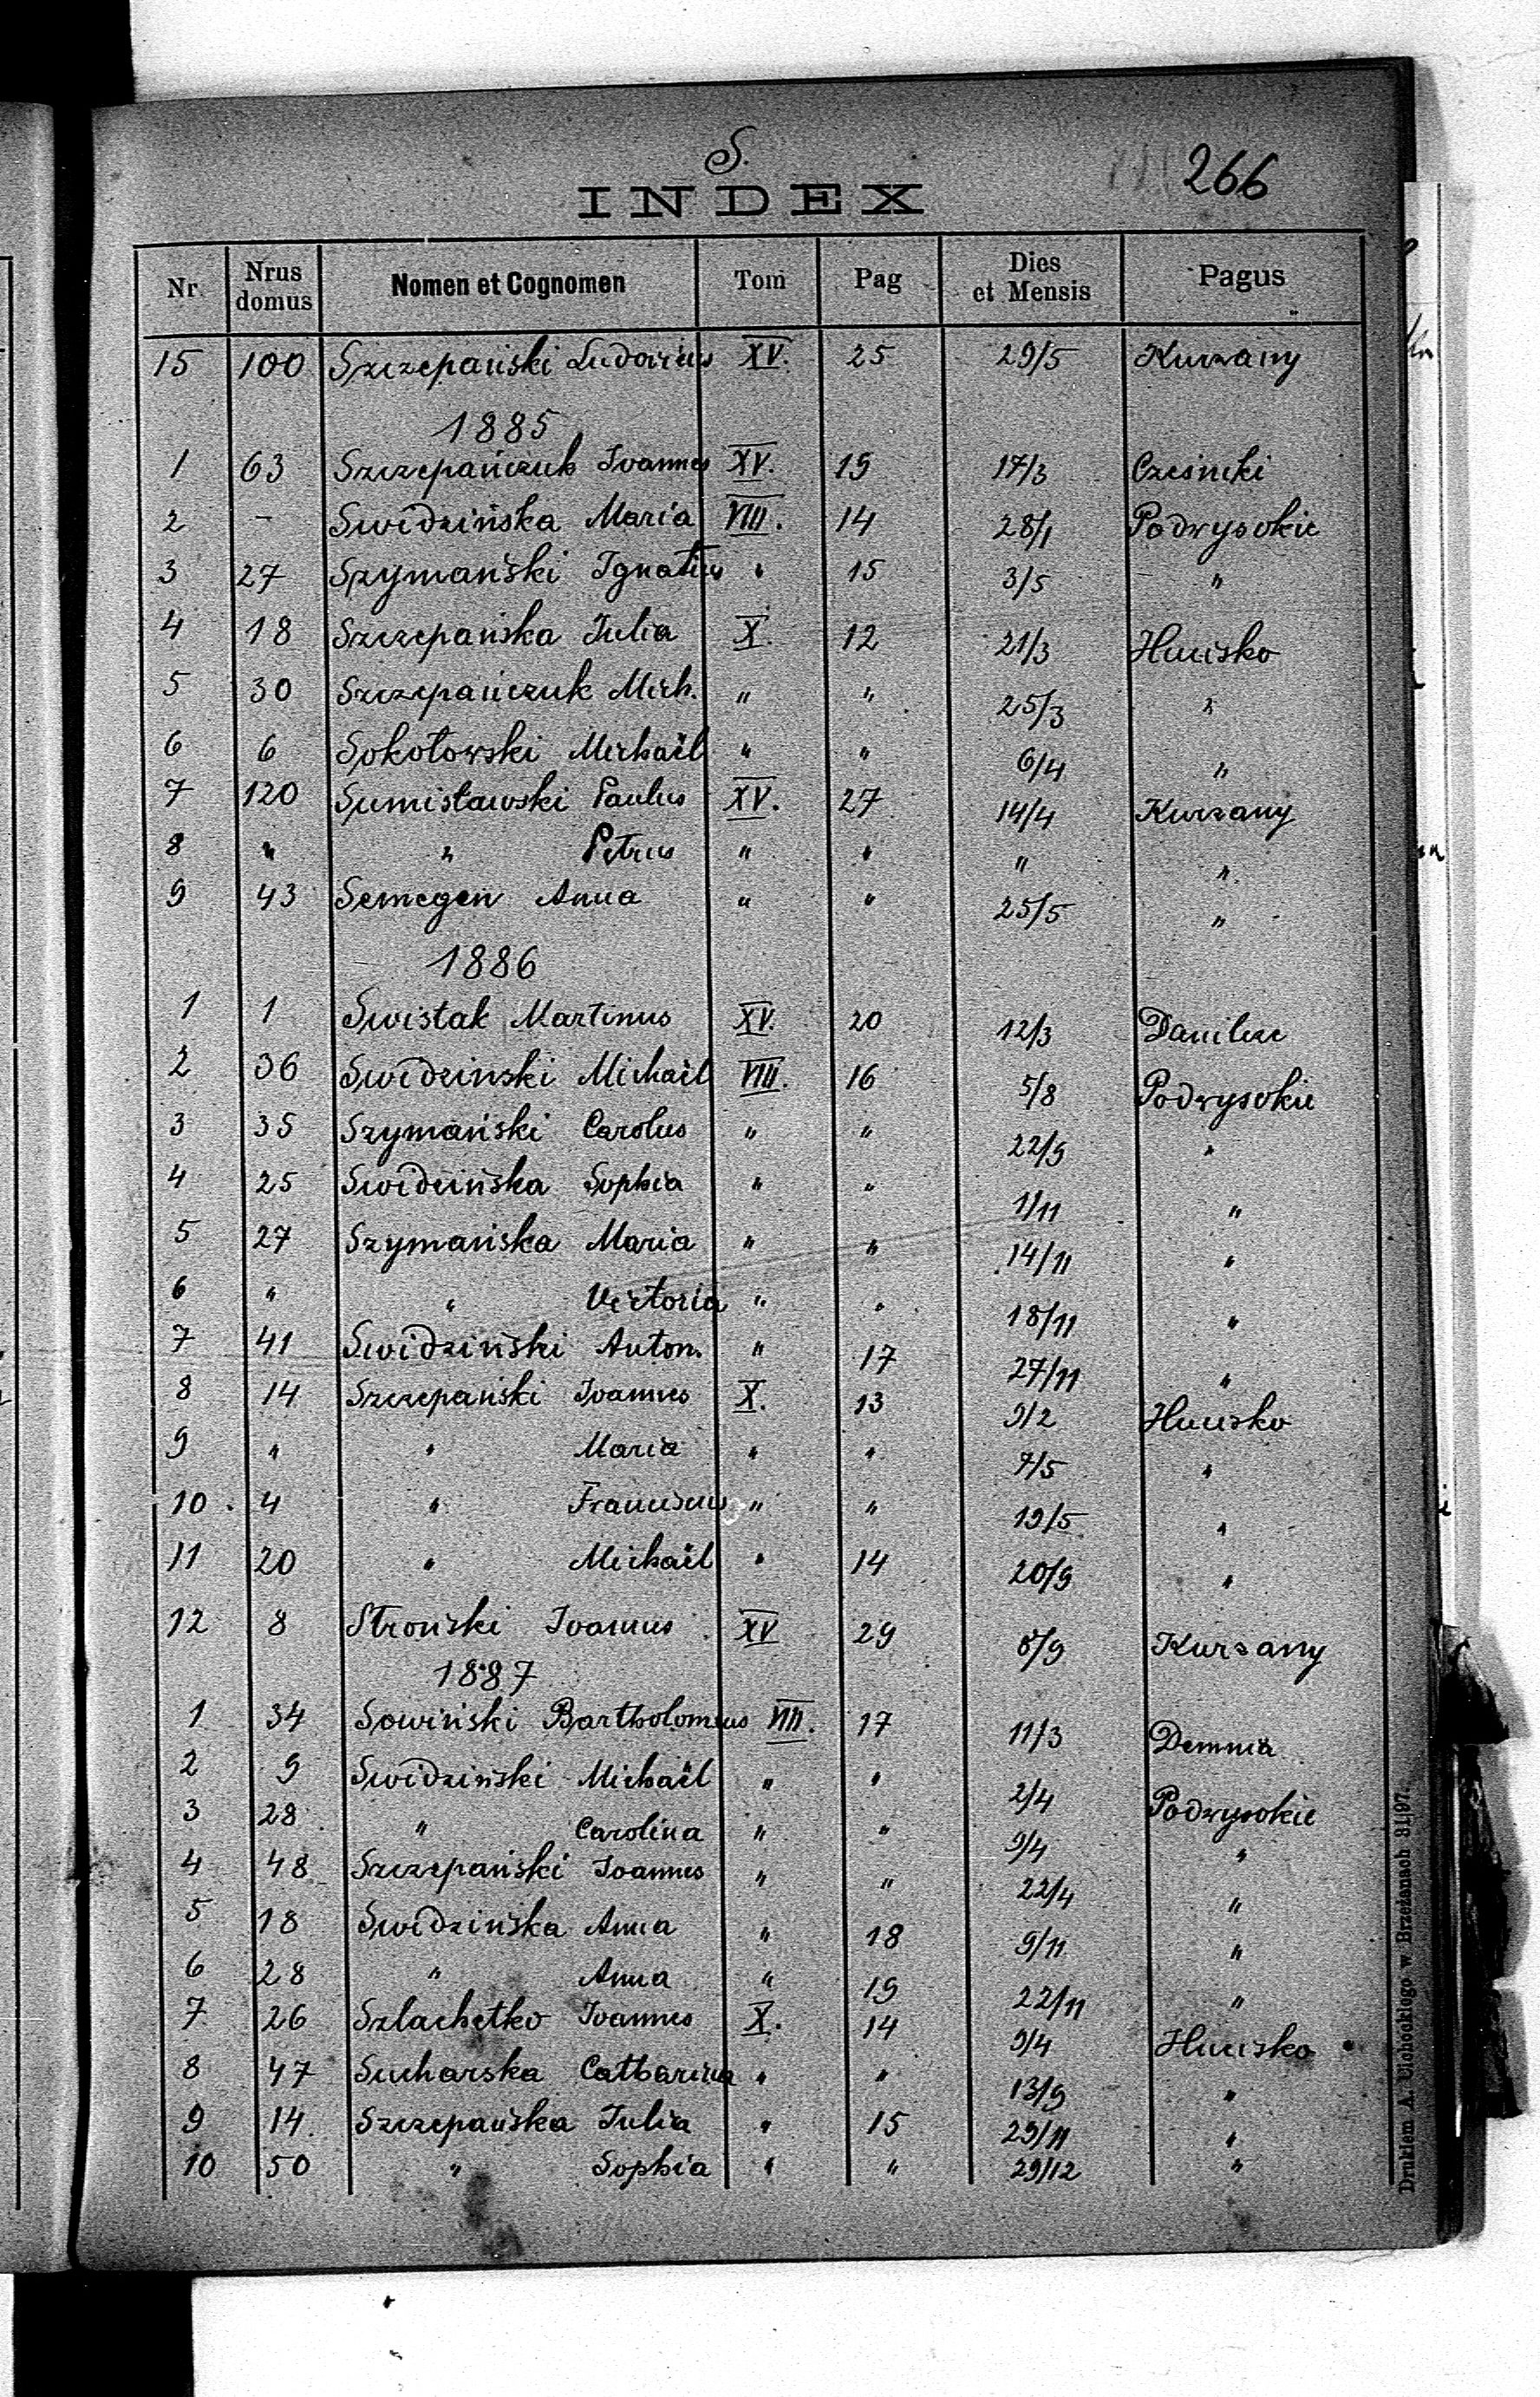 S.
266
INDEX
Nr. Nrus domus Nomen et Cognomen Tom Pag Dies et Mensis Pagus
15 100 Szczepański XV. 25 29/5 Kurzany
1885
1 63 Szczepańczuk Joannes XV. 15 17/3 Cześniki
2 - Swidzińska Maria VIII. 14 28/1 Podwysokie
3 27 Szymański Ignatius " 15 3/5 "
4 18 Szczepańska Julia X. 12 21/3 Hucisko
5 30 Szczepańczuk Mich. " " 25/3 "
6 6 Sokołowski Michaël " " 6/4 "
7 120 Sumisławski Paulus XV. 27 14/4 Kurzany
8 " " Petrus " " " "
9 43 Semegen Anna " " 25/5 "
1886
1 1 Swistak Martinus XV. 20 12/3 Danilcze
2 36 Swidzinski Michaël VIII. 16 5/8 Podwysokie
3 35 Szymański Carolus " " 22/9 "
4 25 Swidzińska Sophia " " 1/11 "
5 27 Szymańska Maria " " 14/11 "
6 " " Victoria " " 18/11 "
7 41 Swidziński Anton. " 17 27/11 "
8 14 Szczepański Joannes X. 13 9/2 Hucisko
9 " " Maria " " 7/5 "
10. 4 " Franciscus " " 19/5 "
11 20 " Michaël " 14 20/9 "
12 8 Stroński Joannes XV 29 8/9 Kurzany
1887
1 34 Sowiński Bartholomeus VIII. 17 11/3 Demnia
2 9 Swidziński Michaël " " 2/4 Podwysokie
3 28 " Carolina " " 9/4 "
4 48 Szczepański Joannes " " 22/4 "
5 18 Swidzińska Anna " 18 9/11 "
6 28 " Anna " 19 22/11 "
7 26 Szlachetko Joannes X. 14 9/4 Hucisko
8 47 Sucharska Catharina " " 13/9 "
9 14. Szczepańska Julia " 15 29/11 "
10 50 " Sophia " " 29/12 "
Drukiem A. Ulohockiego w Brzeżanach 31|97.